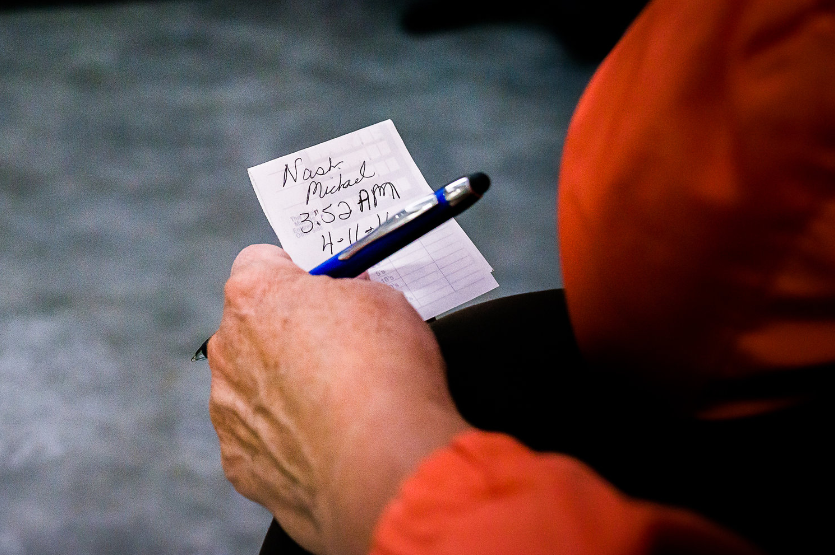 Nash
Michael
3:52 AM
4-11-